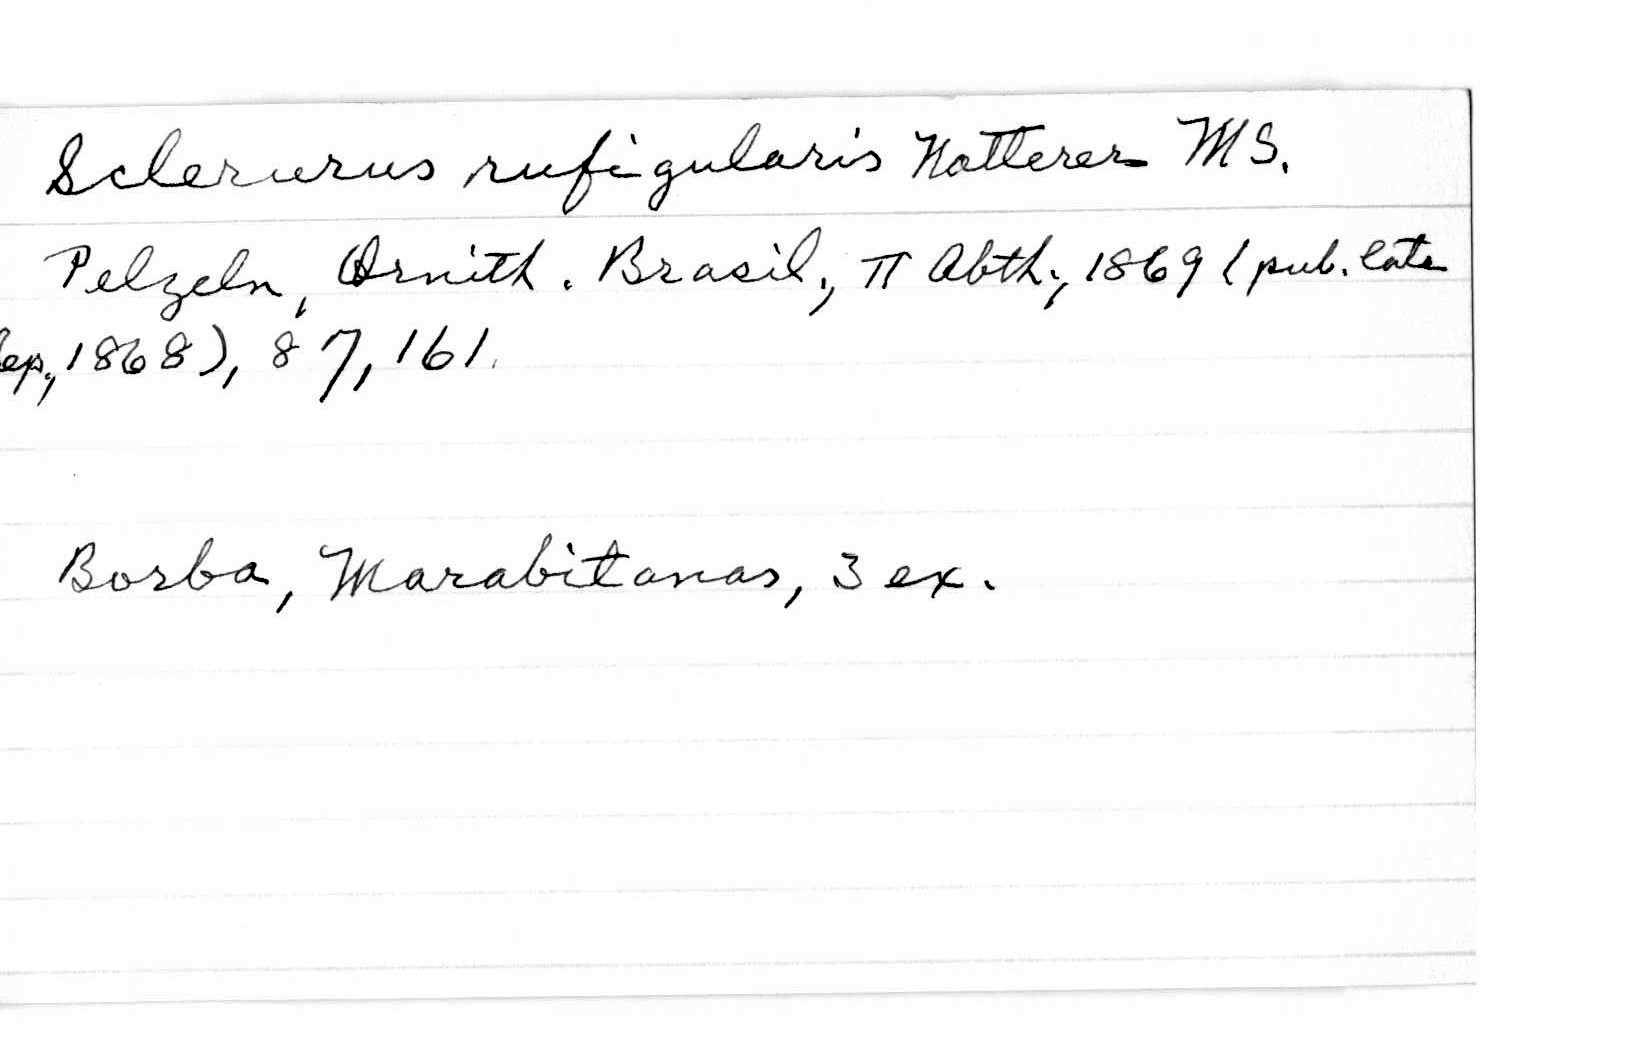 Sclerurus rufigularis Natterer MS.
Pelzeln, Ornith. Brasil., II Abth., 1869 (pub. late
Sep., 1868), 87, 161.
Borba, Marabitanas, 3 ex.